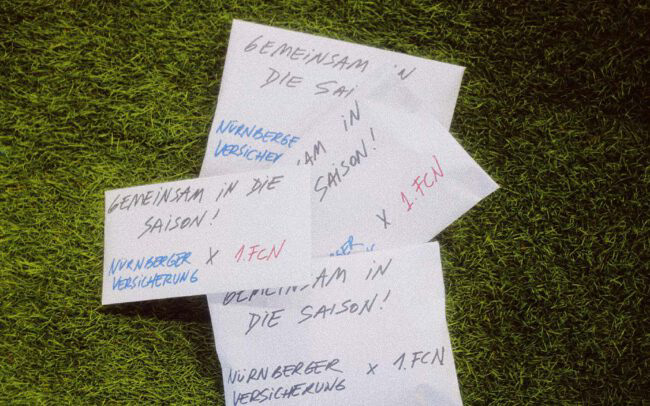 GEMEINSAM IN
DIE SAI
NÜRNBERGE
VERSICHE
AM IN
SAISON!
X 1.FCN
GEMEINSAM IN DIE
SAISON!
NÜRNBERGER X 1.FCN
VERSICHERUNG
GEMEINSAM IN
DIE SAISON!
NÜRNBERGER X 1.FCN
VERSICHERUNG